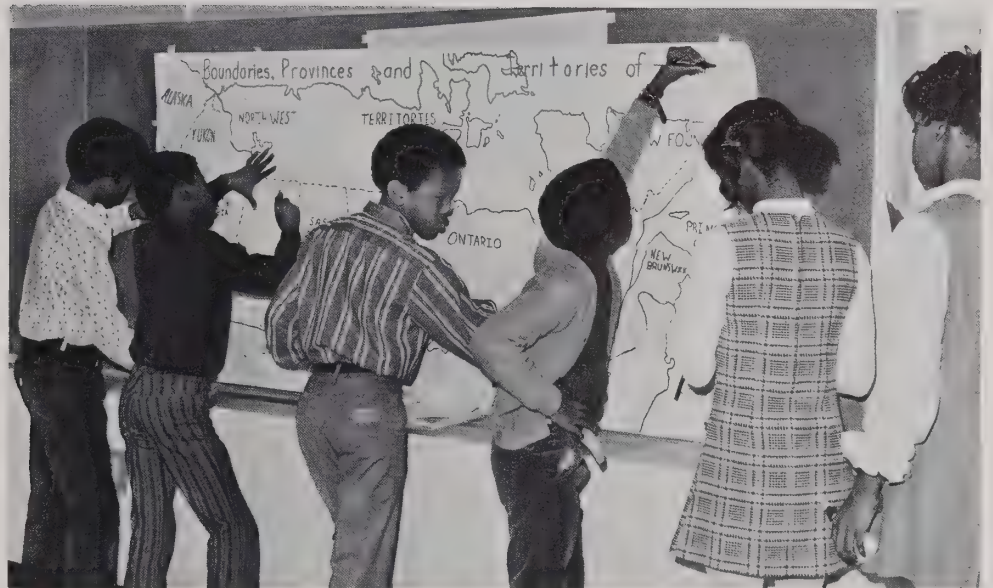 Boundaries, Provinces and Territories of
ALASKA
YUKON
NORTHWEST TERRITORIES
W FOU
SAS
ONTARIO
PRIN
NEW
BRUNSWICK